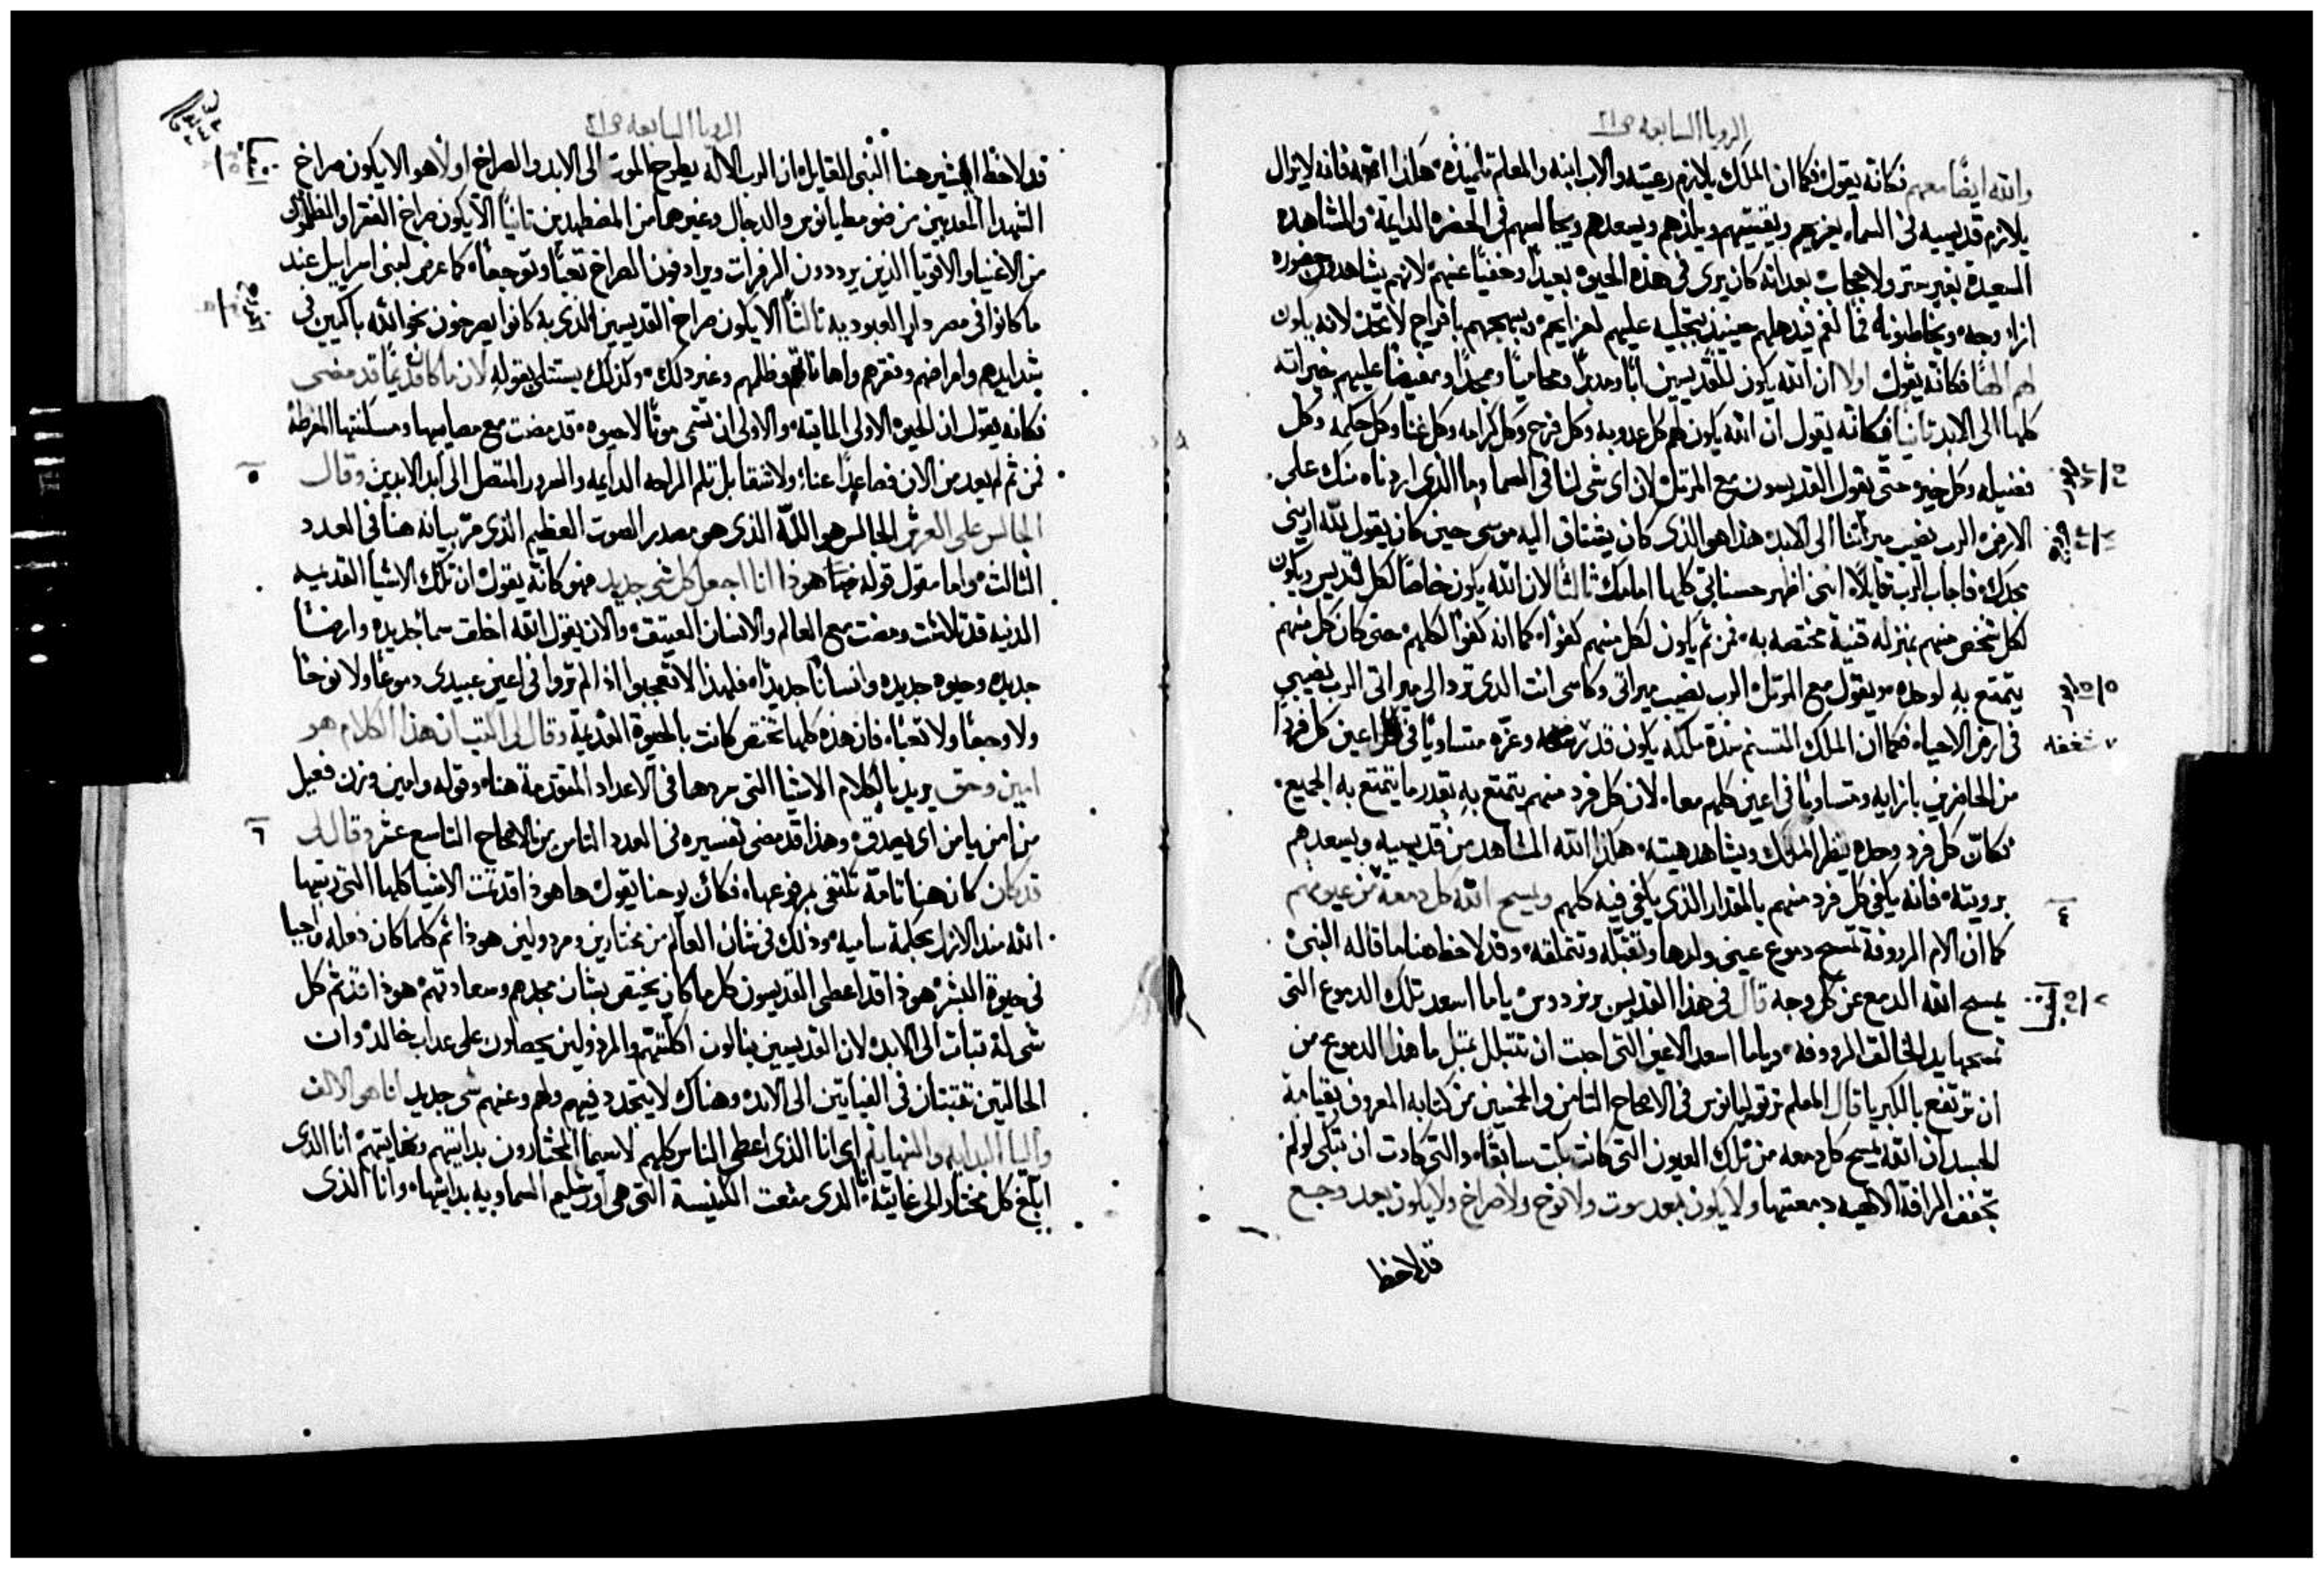 الرويا السابعه ص٢١
والله ايضًا معهم فكانه يقول فكما ان الملك يلازم رعيته والاب ابنه والمعلم تلميذه هكذا الله فانه لا يزال
يلازم قديسيه في السماء يعزيهم ويقيتهم ويلذهم ويسعدهم ويجالسهم في الحضره الدايمة والمشاهده
السعيدة بغير ستر ولا حجاب بعد انه كان يرى في هذه الحيوه بعيدًا وخفيًا عنهم لانهم يشاهدون حضوره
ازاء وجه ويخاطبونه فمًا لفم فيذهلهم حينيذ بتجليه عليهم لعزايهم ويبهجهم بافراح لا تحد لانه يكون
لهم الهًا فكانه يقول اولا ان الله يكون للقديسين ابًا ومدبرًا ومحاميًا وممجدًا ومفيضًا عليهم خيراته
كلها الى الابد ثانيًا فكانه يقول ان الله يكون لهم كل عذوبه وكل فرح وكل كرامه وكل غنا وكل حكمه وكل
فضيله وكل خير حتى يقول القديسون مع المرتل لان اى شى لنا في السما وما الذي اردناه منك على
الارض الرب نصيب ميراثنا الى الابد هذا هو الذى كان يشتاق اليه موسى حين كان يقول لله ارينى
مجدك فاجاب الرب قايلًا انى اظهر حسناتي كلها امامك ثالثًا لان الله يكون خاصًا لكل قديس ويكون
لكل شخص منهم بمنزله قنية مختصه به فمن ثم يكون لكل منهم كفوًا كما انه كفوًا لكلهم حتى كان كل منهم
يتمتع به لوحده ويقول مع المرتل الرب نصيب ميراثى وكاسى انت الذى ترد الى ميراثى الرب نصيبي
في ارض الاحياء فكما ان الملك المتسنم سدة ملكه يكون قدر وعزه متساويًا في اعين كل فردًا
من الحاضرين بازايه ومتساويًا في اعين كلهم معا لان كل فرد منهم يتمتع به بقدر ما يتمتع به الجميع
فكان كل فرد وحده ينظر الملك ويشاهد هيبته هكذا الله المشاهد من قديسيه ويسعدهم
برويته فانه يكفى كل فرد منهم بالمقدار الذي يكفي فيه كلهم ويمسح الله كل دمعة من عيونهم
كما ان الام الرووفة تمسح دموع عينى ولدها وتقبله وتتملقه وقد لاحظ هنا ما قاله النبى
يمسح الله الدمع عن كل وجه قال في هذا القديس برنردوس ياما اسعد تلك الدموع التى
تمسحها يد الخالق الرووفه وياما اسعد الاعين التى احبت ان تتبلل بمثل ما هذا الدموع من
ان ترتفع بالكبريا قال المعلم ترتوليانوس في الاصحاح الثامن والخمسين من كتابه المعروف بقيامة
الجسد ان الله يمسح كل دمعه من تلك العيون التى كانت بكت سابقًا والتى كادت ان تبكى لو لم
تجفف الرافة الالهيه دمعتها ولا يكون بعد موت ولا نوح ولا صراخ ولا يكون بعد وجع
قد لاحظ
الرويا السابعه ص٢١
قد لاحظ البشير هنا النبى القايل ان الرب الاله يطرح الموت الى الابد والصراخ اولًا هو الا يكون صراخ
الشهدا المعذبين من ضوميطيانوس والدجال وغيرهما من المضطهدين ثانيًا الا يكون صراخ الفقرا والمظلومين
من الاغنيا والاقويا الذين يرددون الزفرات ويرادفون الصراخ تعبًا وتوجعًا كما عرض لبنى اسراييل عند
ما كانوا في مصر دار العبوديه ثالثًا الا يكون صراخ القديسين الذى به كانوا يصرخون نحو الله باكيين في
شدايدهم وامراضهم وفقرهم واهاناتهم وظلمهم وغير ذلك وكذلك يستتلى بقوله لان ما كان قديمًا قد مضى
فكانه يقول ان الحيوه الاولى المايته والاولى ان تسمى موتًا لا حيوه قد مضت مع مصايبها ومسكنتها المفرطه
فمن ثم لم يعد من الان فصاعدًا عناء ولا شقا بل تلم الراحه الدايمه والسرور المتصل الى ابد الابدين وقال
الجالس على العرش الجالس هو الله الذى هو مصدر الصوت العظيم الذي مرّ بيانه هنا في العدد
الثالث واما مقول قوله ها هوذا انا اجعل كل شى جديد فهو كانه يقول ان تلك الاشيا القديمه
الدنيه قد تلاشت ومضت مع العالم والانسان العتيق والان يقول الله اخلق سما جديده وارضًا
جديده وحيوه جديده وانسانًا جديدًا فلهذا لا تتعجبوا اذ لم تروا في اعين عبيدى دموعًا ولا نوحًا
ولا وجعًا ولا تعبًا فان هذه كلها تختص كانت بالحيوة القديمة وقال لى اكتب ان هذا الكلام هو
امين وحق يريد بالكلام الاشيا التى سردها في الاعداد المتقدمة هنا وقوله وامين وزن فعيل
من امن يامن اى يصدق وهذا قد مضى تفسيره في العدد الثامن من الاصحاح التاسع عشر وقال لى
قد كان كان هنا تامة تكتفى بمرفوعها فكان يوحنا يقول ها هوذا قد تمت الاشيا كلها التى رتبها
الله منذ الازل بحكمة ساميه وذلك في شان العالم من مختارين ومرذولين هوذا تم كلما كان فعله واجبا
في حيوة البشر هوذا قد اعطى القديسون كل ما كان يختص بشان مجدهم وسعادتهم هوذا قد تم كل
شى له ثبات الى الابد لان القديسين ينالون اكلتهم والمرذولين يحصلون على عذاب خالد وان
الحالتين تثبتان في الغايتين الى الابد وهناك لا يتجدد فيهم ولهم وعنهم شى جديد انا هو الالف
والياء البدايه والنهايه اى انا الذى اعطى الناس كلهم لاسيما المختارون بدايتهم ونهايتهم انا الذى
ابلغ كل مختار الى غايته انا الذى متعت الكنيسة التى هى اورشليم السماويه بدايتها وانا الذى